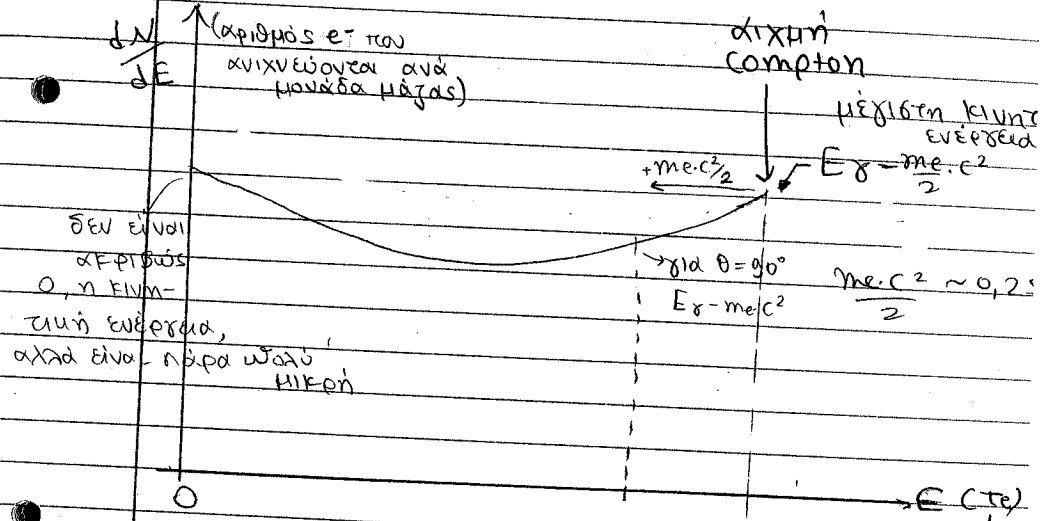 dN/dE
(αριθμός e⁻ που
ανιχνεύονται ανά
μονάδα μάζας)
αιχμή
compton
μέγιστη κινητ
ενέργεια
Eγ - me/2 · c²
+me·c²/2
δεν είναι
ακριβώς
0, η κινη-
τική ενέργεια,
αλλά είναι πάρα πολύ
μικρή
→για θ=90°
Eγ - me c²
me·c²/2 ~ 0,2
0
E (Te)